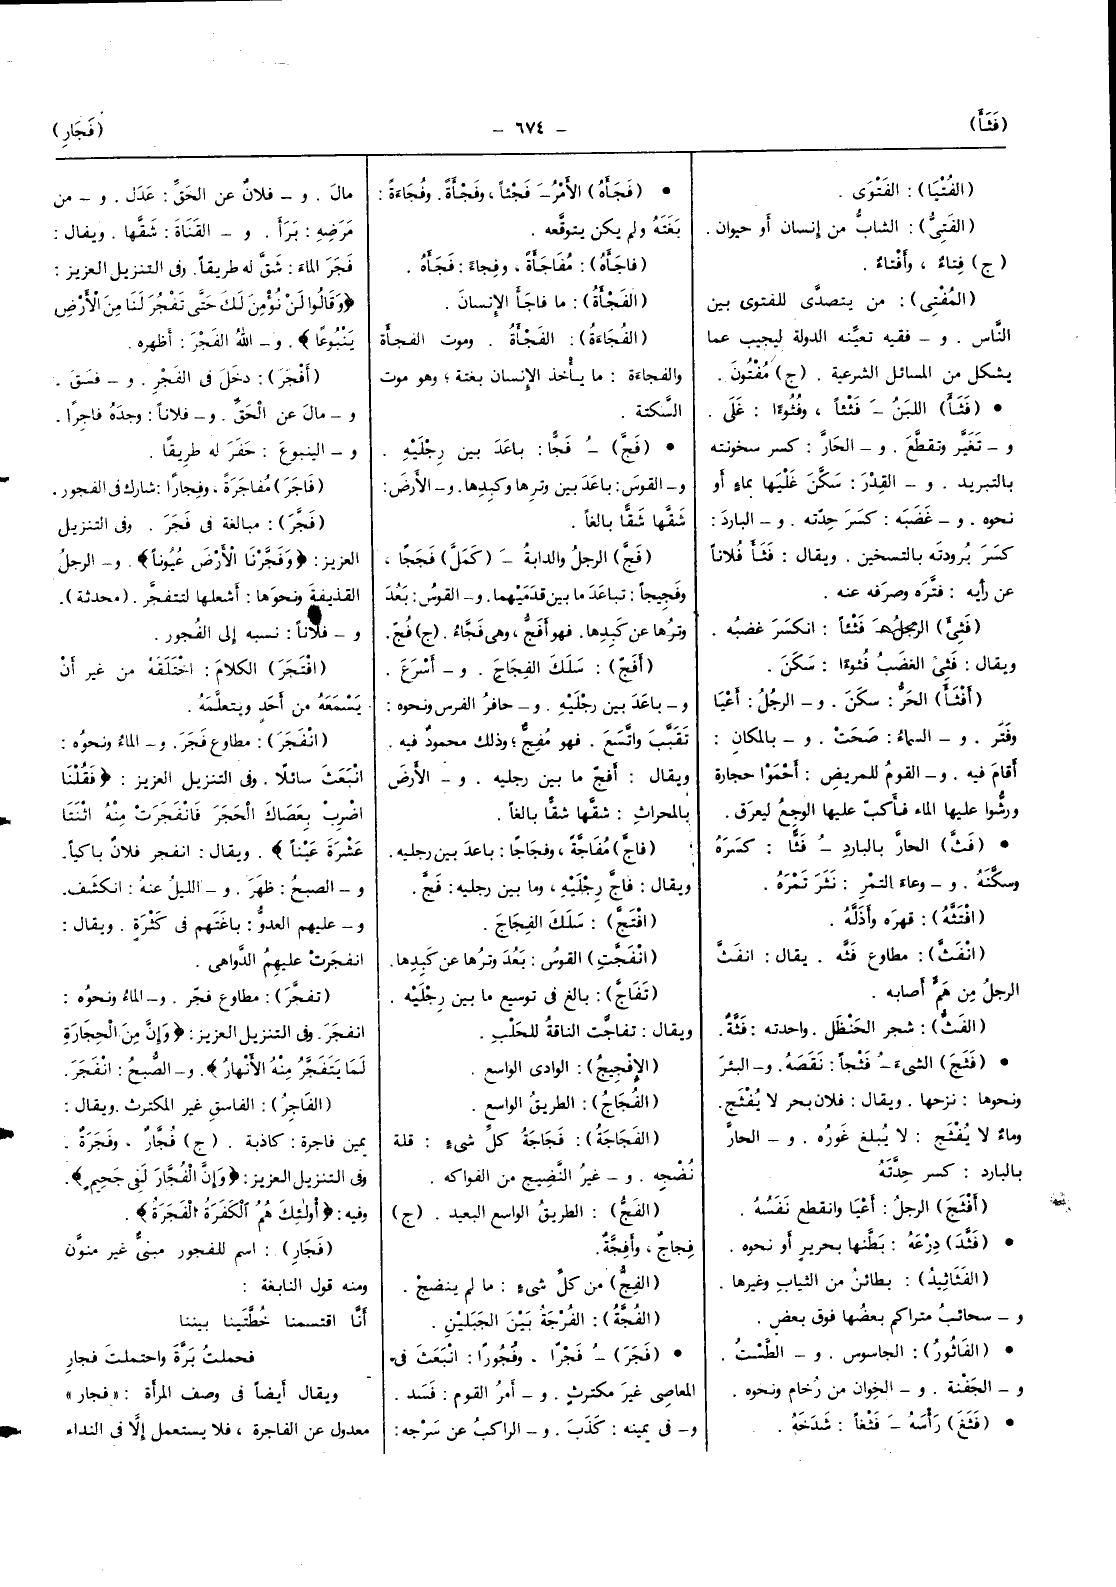 (فَثَأَ)
– ٦٧٤ –
(فَجَارِ)
(الفُتْيَا) : الفَتْوَى .
(الفَتِىُّ) : الشابُّ من إنسان أو حيوان .
(ج) فِتاءٌ ، وأَفْتاءٌ .
(المُفْتِى) : من يتصدَّى للفتوى بين
النَّاس . و – فقيه تعيِّنه الدولة ليجيب عما
يشكل من المسائل الشرعية . (ج) مُفْتُونَ .
• (فَثَأَ) اللبَنُ – فَثْئاً ، وفُثُوءًا : غَلَى .
و – تَغَيَّر وتقطَّعَ . و – الحَارَّ : كسر سخونته
بالتبريد . و – القِدْرَ : سَكَّنَ غَلْيَها بماءٍ أو
نحوه . و – غَضَبَه : كسَرَ حِدّته . و – الباردَ :
كسَرَ بُرودتَه بالتسخين . ويقال : فَثَأَ فُلاناً
عن رأيه : فتَّره وصرَفه عنه .
(فَثِئَ) الرجلُ – فَثْئاً : انكسَرَ غضبُه .
ويقال : فَثِئَ الغضَبُ فُثوءًا : سَكَنَ .
(أَفْثَأَ) الحَرُّ : سكَنَ . و – الرجُلُ : أَعْيَا
وفَتَر . و – السماءُ : صَحَتْ . و – بالمكانِ :
أقامَ فيه . و – القومُ للمريضِ : أَحْمَوْا حجارة
ورشُّوا عليها الماء فأَكبّ عليها الوجِعُ ليعرَق .
• (فَثَّ) الحارَّ بالباردِ –ُ فَثًّا : كسَرَهُ
وسكَّنَهُ . و – وِعاءَ التمْرِ : نَثَرَ تَمْرَهُ .
(افْتَثَّهُ) : قهرَه وأَذَلَّهُ .
(انْفَثَّ) : مطاوع فَثَّه . يقال : انفَثَّ
الرجلُ مِن هَمٍّ أصابه .
(الفَثُّ) : شجر الحَنْظَل . واحدته : فَثَّةٌ .
• (فَثَجَ) الشىءَ –ُ فَثْجاً : نَقَصَهُ . و – البئرَ
ونحوها : نزحها . ويقال : فلان بحر لا يُفْثَج .
وماءٌ لا يُفْثَج : لا يُبلغ غَوْرُه . و – الحارَّ
بالبارد : كسر حِدَّتَهُ
(أَفْثَجَ) الرجلُ : أَعْيَا وانقطع نَفَسُهُ .
• (فَثَّدَ) دِرْعَهُ : بَطَّنها بحريرٍ أو نحوه .
(الفَثَاثِيدُ) : بطائنُ من الثيابِ وغيرها .
و – سحائبُ متراكم بعضُها فوق بعض .
• (الفَاثُورُ) : الجاسوس . و – الطَّسْتُ .
و – الجَفْنة . و – الخِوان من رُخام ونحوه .
• (فَثَغَ) رَأْسَهُ – فَثْغاً : شَدَخَهُ .
• (فَجَأَهُ) الأَمْرُ – فَجْئاً ، وفَجْأَةً . وفُجَاءَةً :
بَغَتَهُ ولم يكن يتوقَّعه .
(فاجأَهُ) : مُفَاجَأَةً ، وفِجاءً : فَجَأَهُ .
(الفَجْأَةُ) : ما فاجَأَ الإِنسانَ .
(الفُجَاءَةُ) : الفَجْأَةُ . وموت الفجأَة
والفجاءة : ما يأْخذ الإنسان بغتة ؛ وهو موت
السَّكتة .
• (فَجَّ) –ُ فَجًّا : باعَدَ بين رِجْلَيْهِ .
و – القوسَ : باعَدَ بين وترِها وكبِدِها . و – الأَرضَ :
شَقَّها شَقًّا بالغاً .
(فَجَّ) الرجلُ والدابةُ – (كَمَلَّ) فَجَجًا ،
وفَجِيجاً : تباعَدَ ما بين قدَمَيْهما . و – القوسُ : بَعُدَ
وترُها عن كَبِدِها . فهو أَفَجُّ ، وهى فَجَّاءُ . (ج) فُجّ .
(أَفَجّ) : سَلَكَ الفِجَاجَ . و – أَسْرَعَ .
و – باعَدَ بين رِجْلَيْهِ . و – حافرُ الفرس ونحوه :
تَقَبَّبَ واتَّسَعَ . فهو مُفِجٌّ ؛ وذلك محمودٌ فيه .
ويقال : أَفجّ ما بين رجليه . و – الأَرضَ
بالمحراثِ : شقَّها شقًّا بالغاً .
(فاجَّ) مُفَاجَّةً ، وفِجَاجًا : باعدَ بين رجليه .
ويقال : فاجَّ رِجْلَيْهِ ، وما بين رجليه : فَجَّ .
(افْتَجَّ) : سَلَكَ الفِجَاجَ .
(انْفَجَّتِ) القوسُ : بَعُدَ وترُها عن كَبِدِها .
(تَفَاجَّ) : بالغ فى توسيع ما بين رِجْلَيْه .
ويقال : تفاجَّت الناقةُ للحَلْبِ .
(الإِفْجِيجُ) : الوادى الواسع .
(الفُجَاجُ) : الطريقُ الواسع .
(الفَجَاجَةُ) : فَجَاجَةُ كلِّ شىءٍ : قلة
نُضْجِه . و – غيرُ النَّضِيج من الفواكه .
(الفَجُّ) : الطريقُ الواسع البعيد . (ج)
فِجاجٌ ، وأَفِجَّةٌ .
(الفِجُّ) من كلِّ شىءٍ : ما لم ينضجْ .
(الفُجَّةُ) : الفُرْجَةُ بَيْنَ الجَبَلَيْنِ .
• (فَجَرَ) –ُ فَجْرًا . وفُجُورًا : انْبَعَثَ فى
المعاصى غيرَ مكترثٍ . و – أَمرُ القوم : فَسَد .
و – فى يمينه : كَذَبَ . و – الراكبُ عن سَرْجه :
مالَ . و – فلانٌ عن الحَقِّ : عَدَل . و – من
مَرَضِهِ : بَرَأَ . و – القَنَاةَ : شقَّها . ويقال :
فَجَرَ الماءَ : شَقَّ له طريقاً . وفى التنزيل العزيز :
﴿وَقَالُوا لَنْ نُؤْمِنَ لَكَ حَتَّى تَفْجُرَ لَنَا مِنَ الْأَرْضِ
يَنْبُوعًا﴾ . و – اللهُ الفَجْرَ : أظهره .
(أَفْجَرَ) : دخَلَ فى الفَجْرِ . و – فسَقَ .
و – مالَ عن الْحَقِّ . و – فلاناً : وجدَهُ فاجِرًا .
و – الينبوعَ : حَفَرَ له طريقًا .
(فَاجَرَ) مُفاجَرَةً ، وفِجارًا : شارك فى الفجور .
(فَجَّرَ) : مبالغة فى فَجَرَ . وفى التنزيل
العزيز : ﴿وَفَجَّرْنَا الْأَرْضَ عُيُوناً﴾ . و – الرجلُ
القذيفةَ ونحوَها : أشعلها لتتفجّر . (محدثة) .
و – فلاناً : نسبه إلى الفُجور .
(افْتَجَرَ) الكلامَ : اخْتَلَقَهُ من غير أَنْ
يَسْمَعَهُ من أَحَدٍ ويتعلَّمَهُ .
(انْفَجَرَ) : مطاوع فَجَر . و – الماءُ ونحوُه :
انْبَعَثَ سائلًا . وفى التنزيل العزيز : ﴿فَقُلْنَا
اضْرِبْ بِعَصَاكَ الْحَجَرَ فَانْفَجَرَتْ مِنْهُ اثْنَتَا
عَشْرَةَ عَيْناً﴾ . ويقال : انفجر فلانٌ باكياً .
و – الصبحُ : ظهَرَ . و – الليلُ عنهُ : انكشف .
و – عليهم العدوُّ : باغَتَهم فى كَثْرَةٍ . ويقال :
انفجرَتْ عليهِمُ الدَّواهى .
(تفجَّرَ) : مطاوع فجّر . و – الماءُ ونحوُه :
انفجَرَ . وفى التنزيل العزيز : ﴿وَإِنَّ مِنَ الْحِجَارَةِ
لَمَا يَتَفَجَّرُ مِنْهُ الْأَنْهارُ﴾ . و – الصُّبحُ : انْفَجَرَ .
(الفَاجِرُ) : الفاسق غير المكترث . ويقال :
يمين فاجرة : كاذبة . (ج) فُجَّارٌ . وفَجَرَةٌ .
وفى التنزيل العزيز : ﴿وَإِنَّ الْفُجَّارَ لَفِى جَحِيمٍ﴾ .
وفيه : ﴿أُولَٰئِكَ هُمُ ٱلْكَفَرَةُ الْفَجَرَةُ﴾ .
(فَجَارِ) : اسم للفجور مبنىٌّ غير منوَّن
ومنه قول النابغة :
أَنَّا اقتسمنا خُطَّتَينا بيننا
فحملتُ بَرَّةَ واحتملتَ فجارِ
ويقال أيضاً فى وصف المرأة : «فجارِ»
معدول عن الفاجرة ، فلا يستعمل إلَّا فى النداء